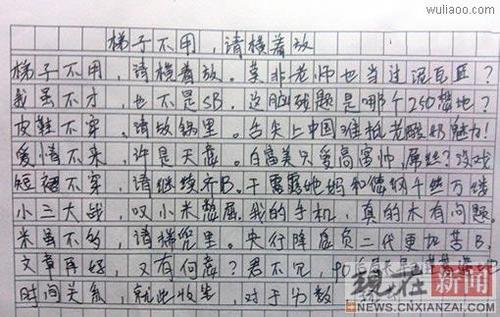 wuliaoo.com
梯子不用，请横着放
梯子不用，请横着放。莫非老师也当过泥瓦匠？
我虽不才，也不是SB。这脑残题是哪个250想地？
皮鞋不穿，请放锅里。舌尖上中国堆积老酸奶魅力！
爱情不来，许是天意。白富美只爱高富帅，屌丝？没戏
短裙不穿，请继续齐B。干露露她妈和您纲千丝万缕
小三大战，叹小米憋屈。我的手机，真的木有问题。
米虽不多，请梯兜里。央行降息负二代更加苦B。
文章再好，又有何意？君不见，90
时间关系，就此收笔，对于分数
现在新闻
WWW.CNXIANZAI.COM